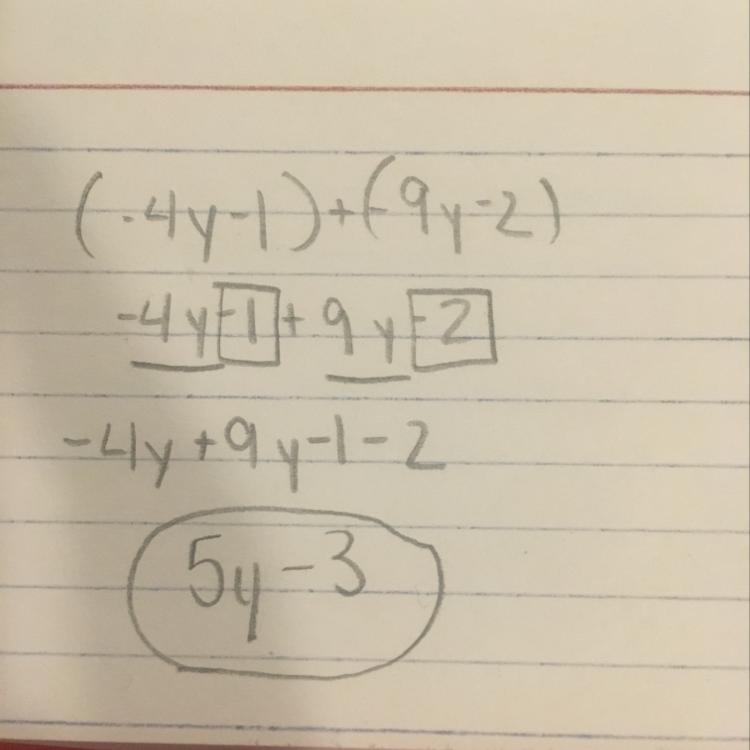 (-4y-1)+(-9y-2)
-4y-1+9y-2
-4y+9y-1-2
5y-3